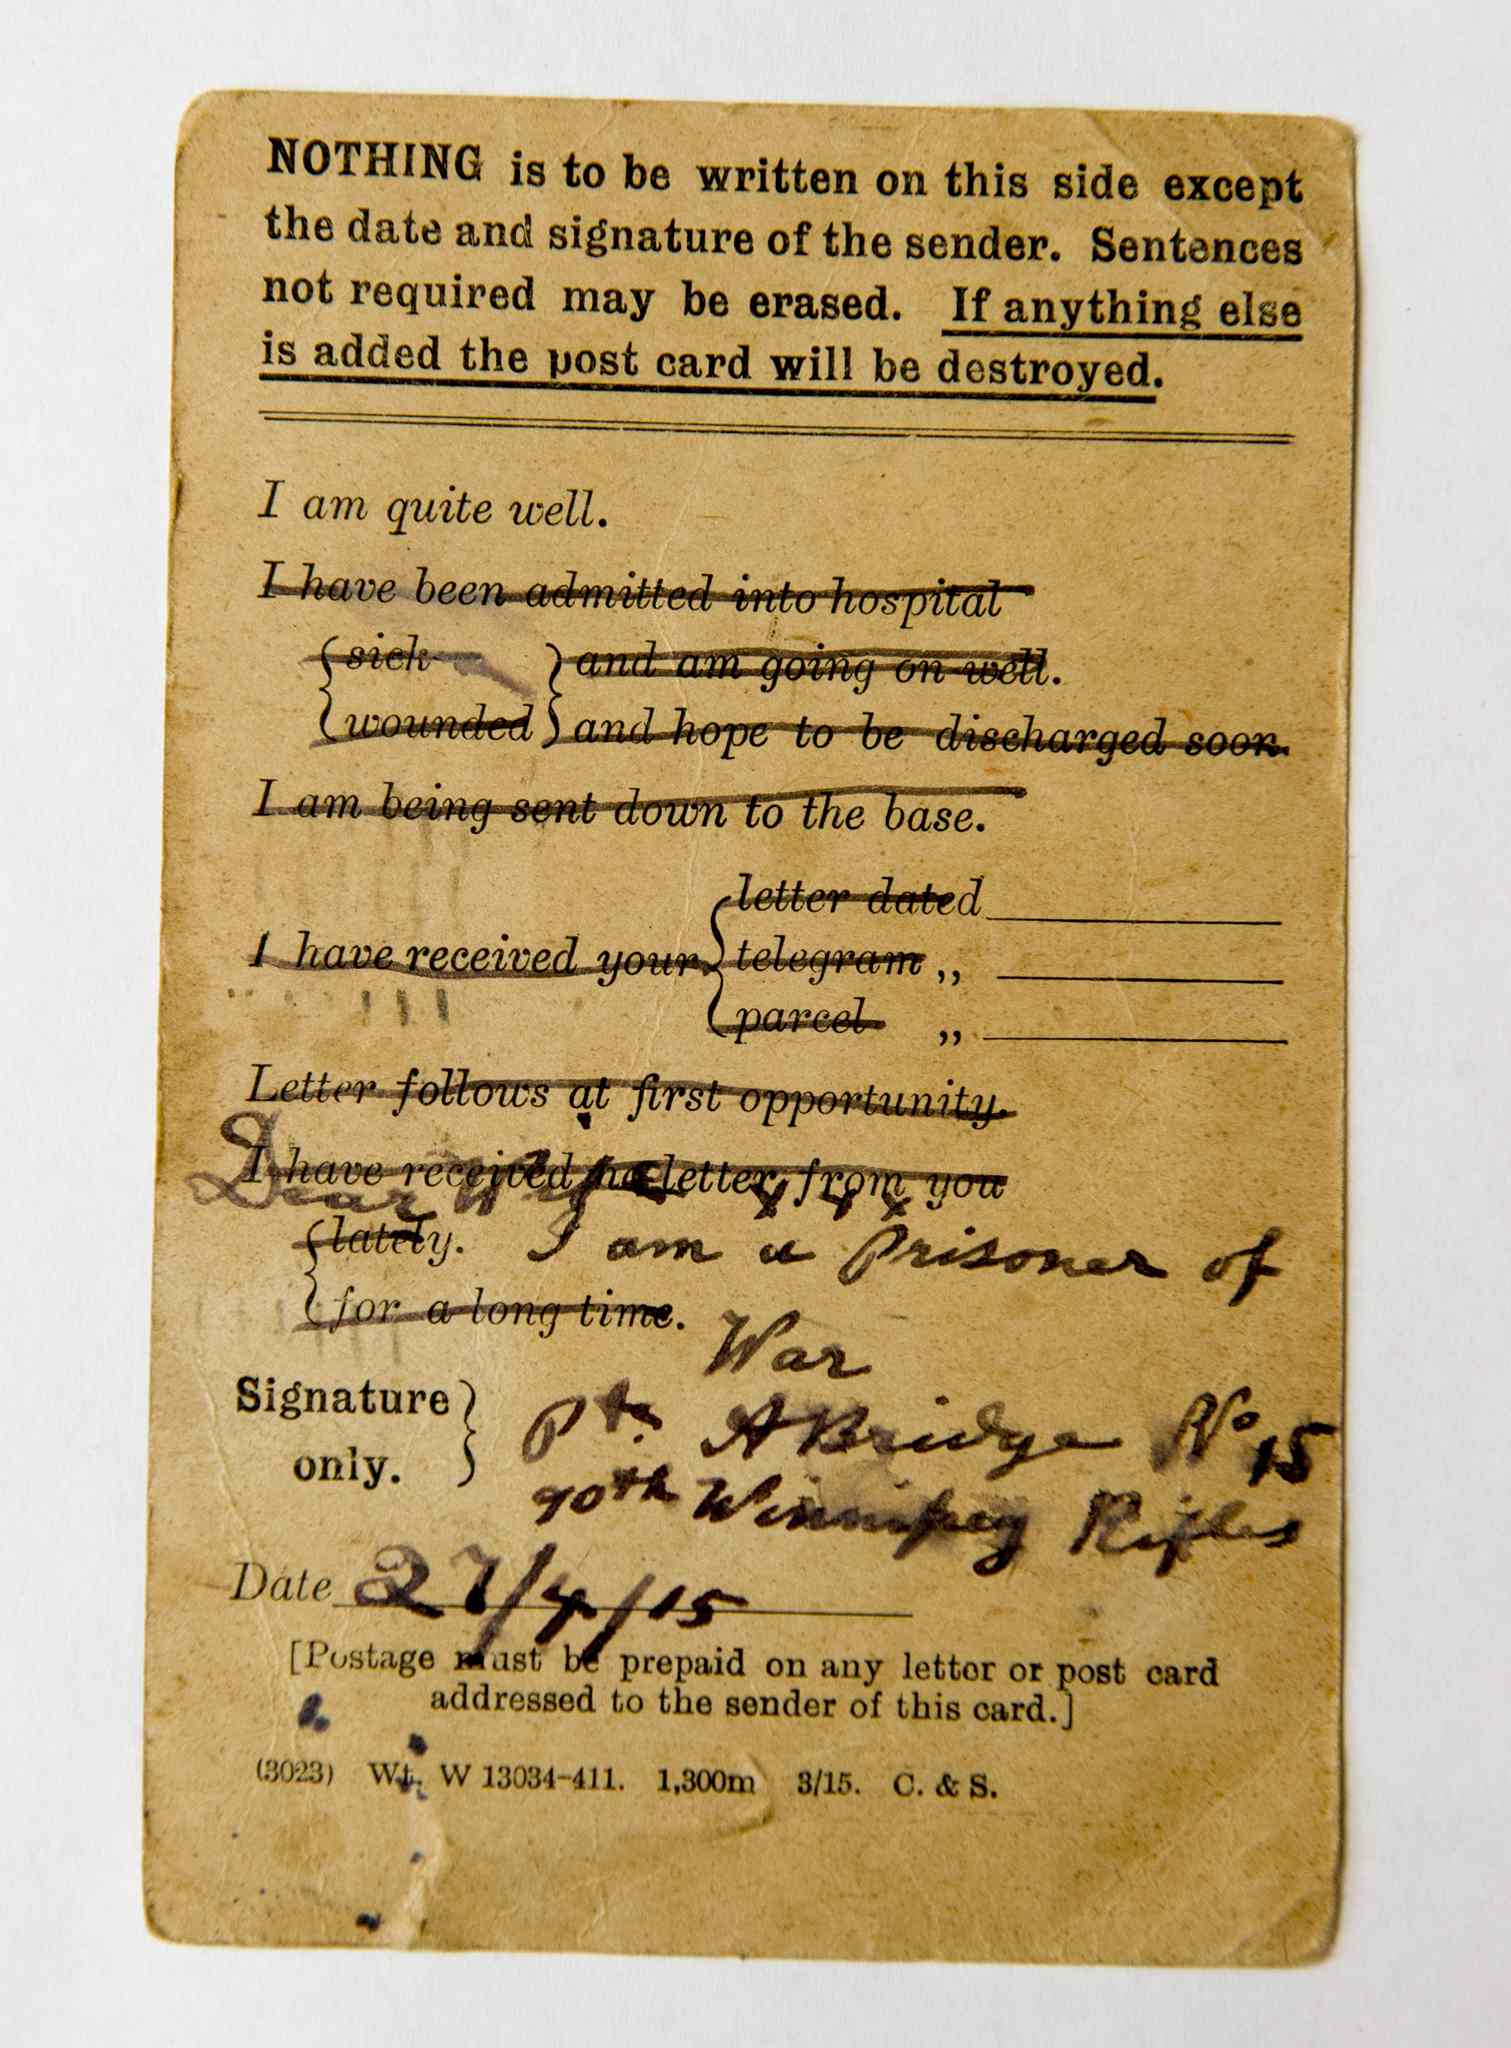 NOTHING is to be written on this side except
the date and signature of the sender. Sentences
not required may be erased. If anything else
is added the post card will be destroyed.
I am quite well.
I have been admitted into hospital
{ sick } and am going on well.
{ wounded } and hope to be discharged soon.
I am being sent down to the base.
letter dated
I have received your { telegram ,,
parcel ,,
Letter follows at first opportunity.
I have received no letter from you
Dear Wife x x x
{ lately. I am a Prisoner of
{ for a long time.
War
Signature } Pte. A Bridge No 15
only. } 90th Winnipeg Rifles
Date 27/4/15
[Postage must be prepaid on any letter or post card
addressed to the sender of this card.]
(3023) Wt. W 13034-411. 1,300m 3/15. C. & S.